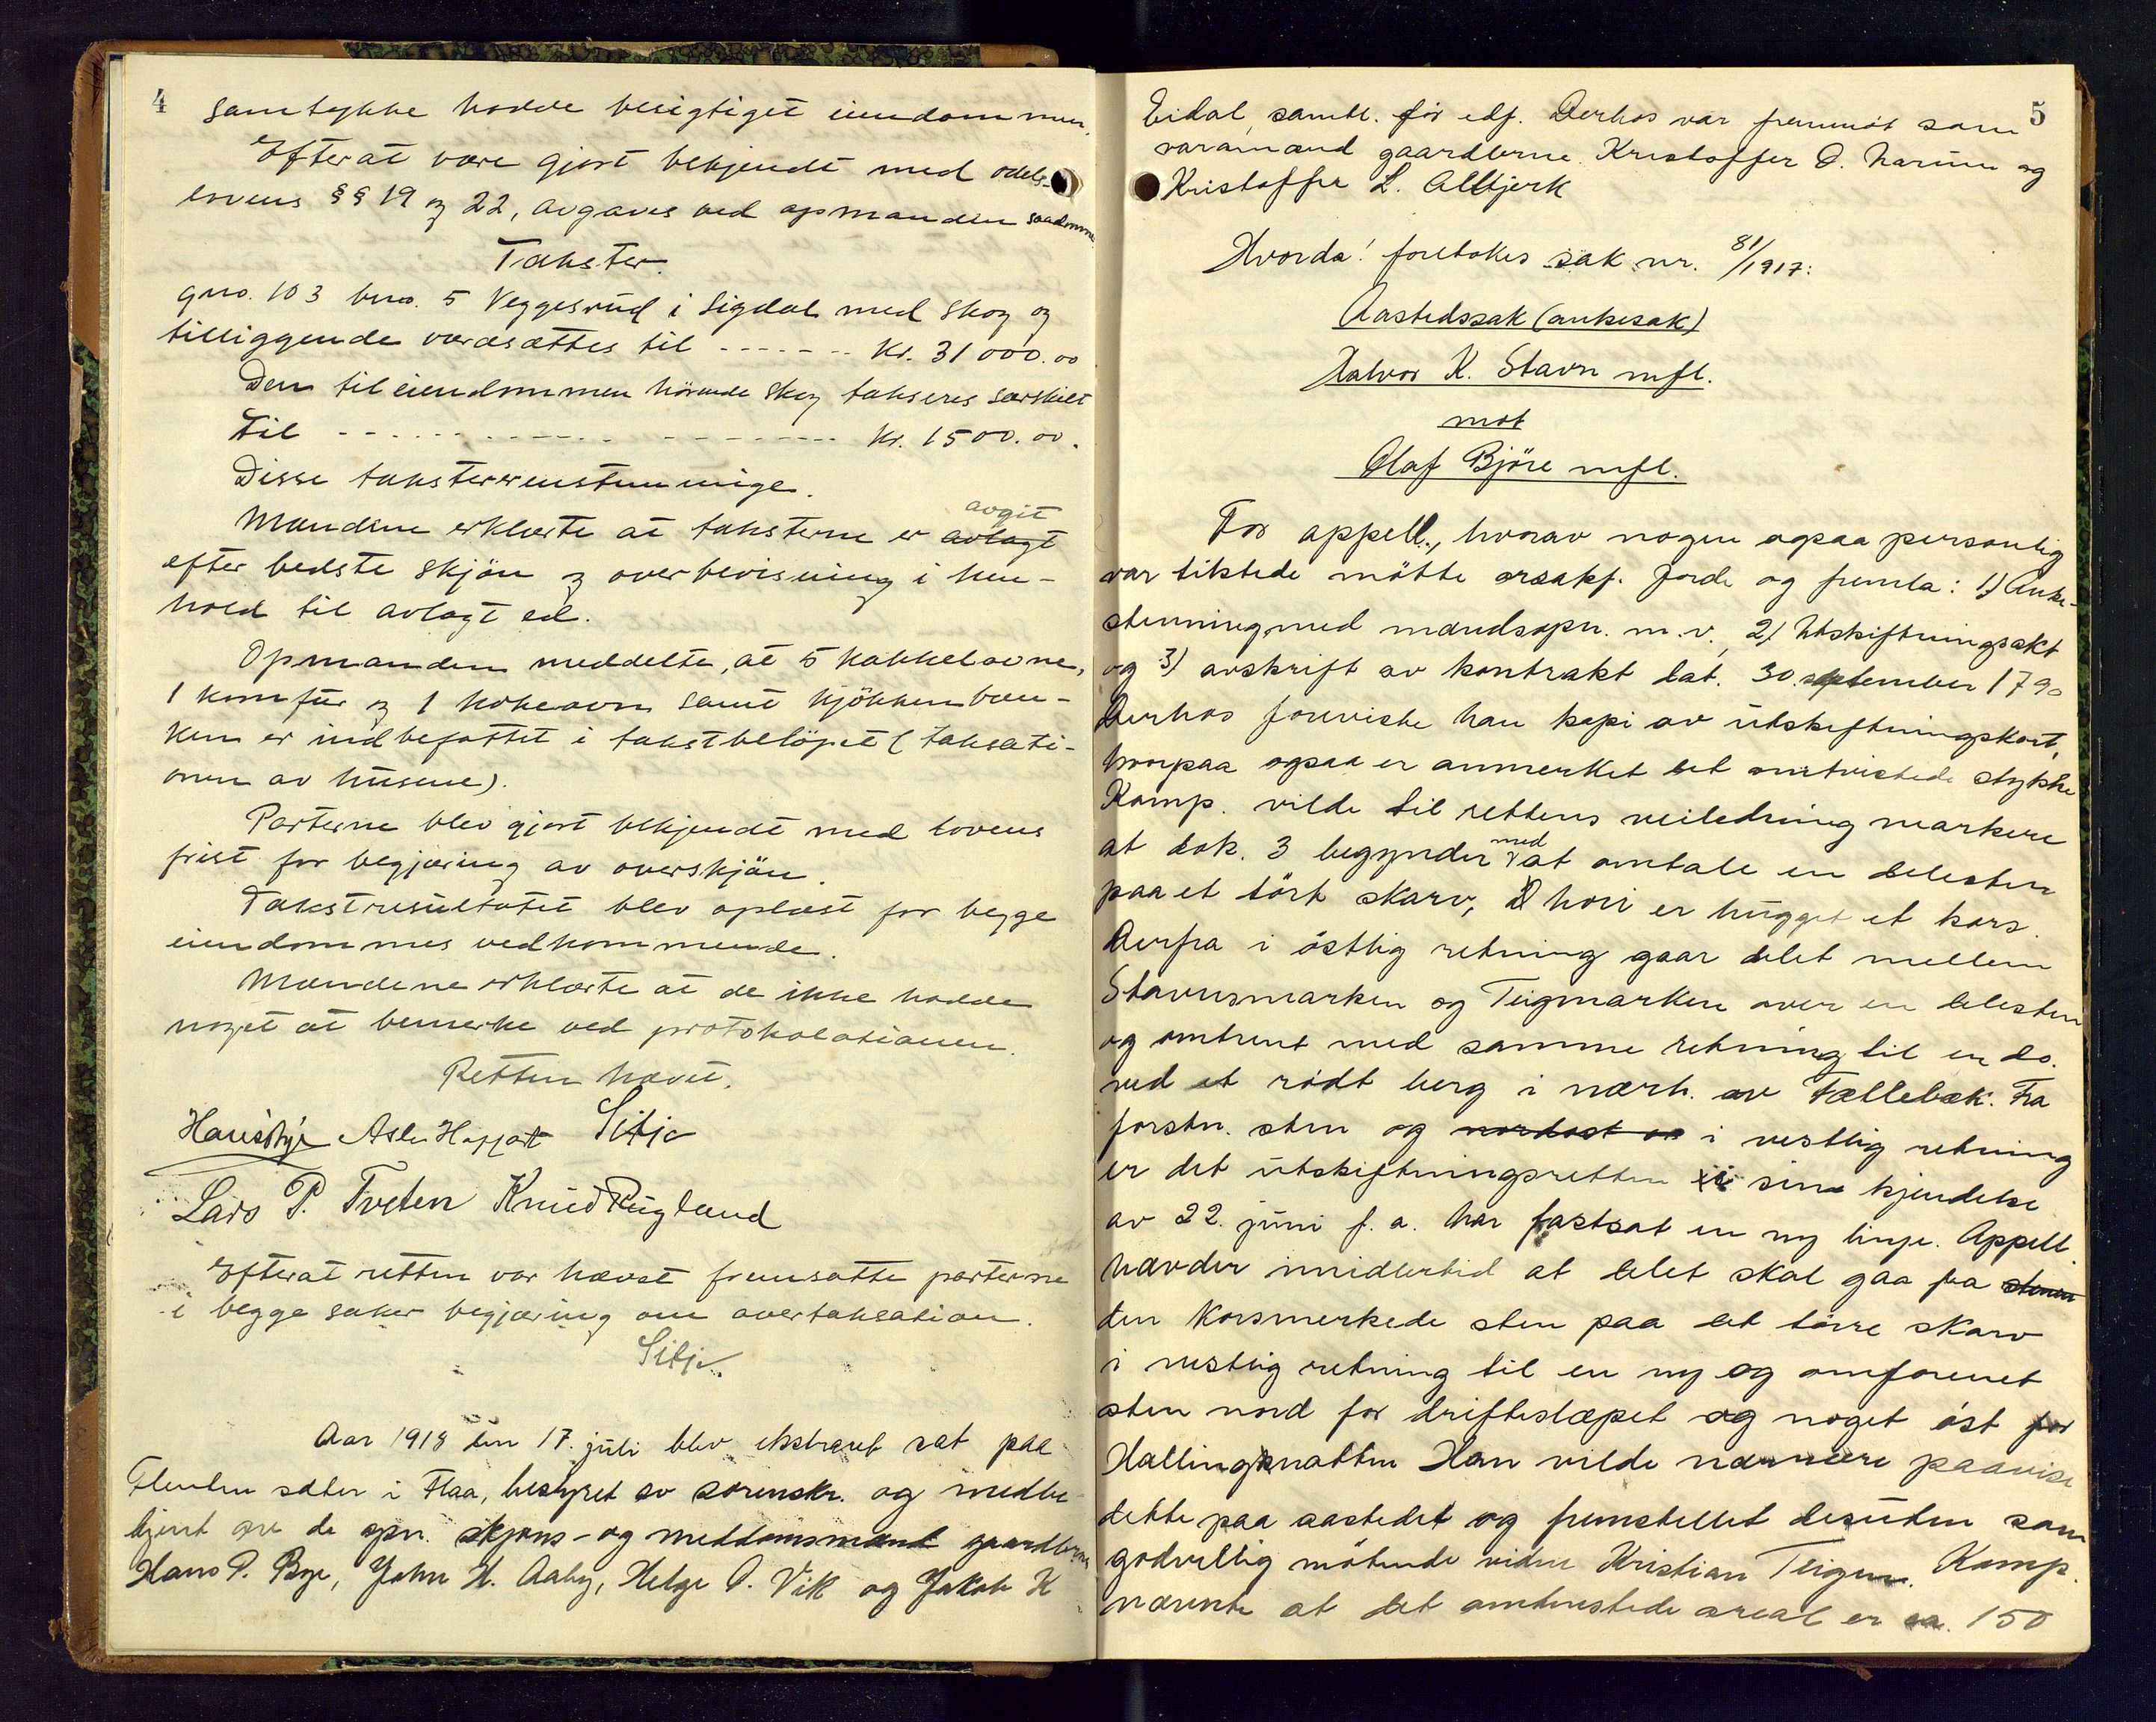 4
samtykke hadde besigtiget eiendommen.
Efterat være gjort bekjendt med odels-
lovens §§ 19 og 22, avgaves ved opmanden saadanne
Takster.
gno. 103 bno. 5 Veggesrud i Sigdal med skog og
tilliggende værdsættes til ------- kr. 31000.00
Den til eiendommen hörende skog takseres særskilt
til -------------------- kr. 1500.00.
Disse takster enstemmige.
avgit
Mændene erklærte at taksterne er avlagt
efter bedste skjön og overbevisning i hen-
hold til avlagt ed.
Opmanden meddelte, at 5 kakkelovne,
1 komfur og 1 kokeovn samt kjökkenbæn-
ken er indbefattet i takstbelöpet (taksati-
onen av husene).
Parterne blev gjort bekjendt med lovens
frist for begjæring av overskjön.
Takstresultatet blev oplæst for begge
eiendommes vedkommende.
Mændene erklærte at de ikke hadde
noget at bemerke ved protokolationen.
Retten hævet.
Asle Hoffart Sitje
Lars P. Tveten Knud Rugland
Efterat retten var hævet fremsatte parterne
i begge saker begjæring om overtaksation.
Sitje.
Aar 1918 den 17. juli blev ekstraret sat paa
sæter i Flaa, bestyret av sorenskr. og medbe-
tjent av de opn. skjöns- og meddomsmænd gaardbrne
Hans P. Bye, John H. Aaby, Helge O. Vik og Jakob K
5
Eidal, samtl. för edf. Derhos var fremmöt som
varamænd gaardbrne Kristoffer O. og
Kristoffer L. Allbjerk
Hvorda! foretokes sak nr. 81/1917:
Aastedssak (ankesak)
Halvor K. Stavn mfl.
mot
Olaf Björe mfl.
For appell., hvorav nogen ogsaa personlig
var tilstede mötte orsakf. Jorde og fremla: 1) Anke-
stevning med mandsopn. m.v., 2) Utskiftningsakt
og 3) avskrift av kontrakt dat. 30. september 1790
Derhos foreviste han kopi av utskiftningskart,
hvorpaa ogsaa er anmerket det omtvistede stykke
Komp. vilde til rettens veiledning markere
med
at dok. 3 begynder at omtale en delesten
paa et tört skarv, hvori er hugget et kors.
Derfra i östlig retning gaar delet mellem
Stavnsmarken og Teigmarken over en delesten
og omtrent med samme retning til en do.
ved et rödt berg i nærh. av Fællebæk. Fra
förstn. sten og nordost om i vestlig retning
er det utskiftningsretten i sin kjendelse
av 22. juni f. a. har fastsat en ny linje. Appell.
hævder imidlertid at delet skal gaa fra stenen
den korsmerkede sten paa det törre skarv
i vestlig retning til en ny og omforenet
sten nord for drifteslæpet og noget öst for
Hallingknatten Han vilde nærmere paavise
dette paa aastedet og fremstillet desuten som
godvillig mötende vidne Kristian Teigen. Komp.
nævnte at det omtvistede areal er ca. 150